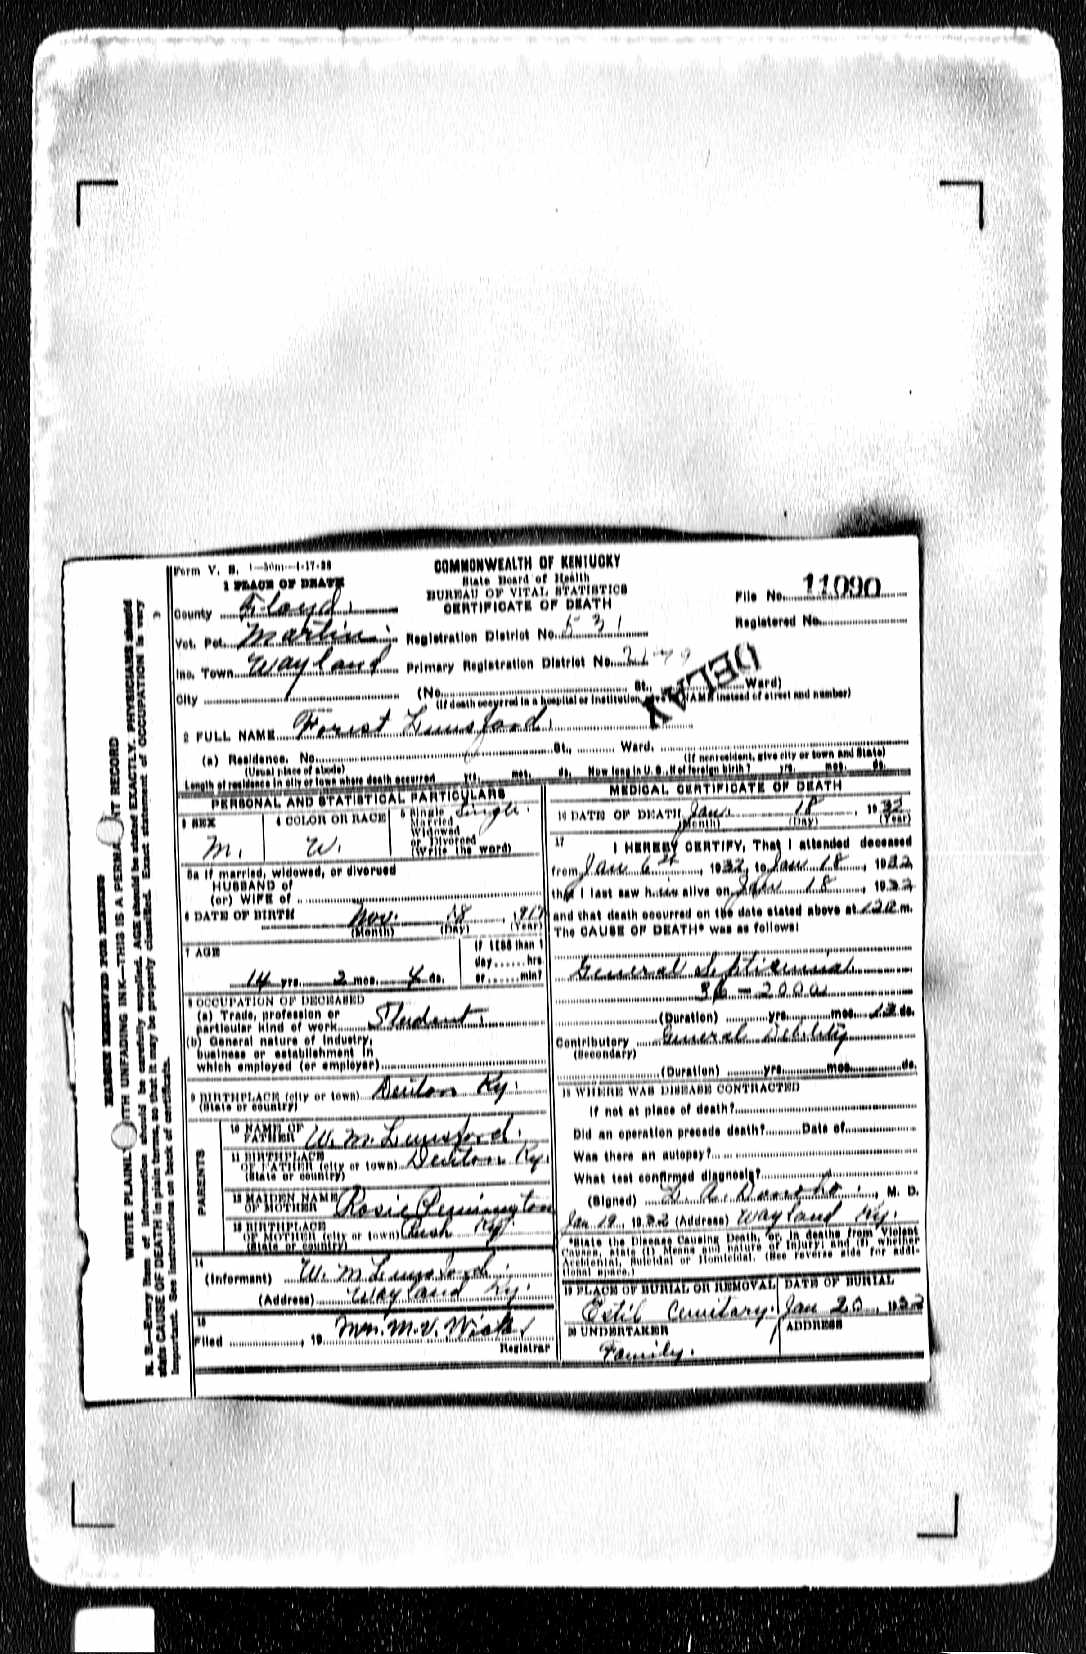 Form V. S. 1-50m-4-17-28
COMMONWEALTH OF KENTUCKY
State Board of Health
BUREAU OF VITAL STATISTICS
CERTIFICATE OF DEATH
File No. 11090
Registered No.
1 PLACE OF DEATH
County Floyd
Vot. Pct. Martin Registration District No. 531
Inc. Town Wayland Primary Registration District No.
City (No. St. Ward)
(If death occurred in a hospital or institution, NAME instead of street and number)
DELAY
2 FULL NAME Forest Lunsford
(a) Residence. No. St., Ward.
(Usual place of abode) (If nonresident, give city or town and State)
Length of residence in city or town where death occurred yrs. mos. ds. How long in U. S., if of foreign birth? yrs. mos. ds.
PERSONAL AND STATISTICAL PARTICULARS
3 SEX
M.
4 COLOR OR RACE
W.
5 Single Single
Married
Widowed
or Divorced
(Write the word)
5a If married, widowed, or divorced
HUSBAND of
(or) WIFE of
6 DATE OF BIRTH Nov. 18, 1917
(Month) (Day) (Year)
7 AGE
14 yrs. 2 mos. 4 ds.
If LESS than 1
day......hrs
or......min?
8 OCCUPATION OF DECEASED
(a) Trade, profession or
particular kind of work Student
(b) General nature of industry,
business or establishment in
which employed (or employer)
9 BIRTHPLACE (city or town) Denton Ky.
(State or country)
PARENTS
10 NAME OF
FATHER W. M. Lunsford
11 BIRTHPLACE
OF FATHER (city or town) Denton Ky.
(State or country)
12 MAIDEN NAME
OF MOTHER Rosie Pennington
13 BIRTHPLACE
OF MOTHER (city or town) Ky.
(State or country)
14
(Informant) W. M Lunsford
(Address) Wayland Ky.
15
Filed , 19 Mrs. M. V. Wicks
Registrar
MEDICAL CERTIFICATE OF DEATH
16 DATE OF DEATH Jan. 18, 1932
(Month) (Day) (Year)
17
I HEREBY CERTIFY, That I attended deceased
from Jan 6th, 1932, to Jan 18, 1932
that I last saw him alive on Jan 18, 1932
and that death occurred on the date stated above at m.
The CAUSE OF DEATH* was as follows:
General Septicemia
36-2000
(Duration) yrs. mos. 12 ds.
Contributory General Debility
(Secondary)
(Duration) yrs. mos. ds.
18 WHERE WAS DISEASE CONTRACTED
If not at place of death?
Did an operation precede death? Date of
Was there an autopsy?
What test confirmed diagnosis?
(Signed) M. D.
Jan 19, 1932 (Address) Wayland Ky.
*State the Disease Causing Death, or, in deaths from Violent
Causes, state (1) Means and nature of Injury; and (2) whether
Accidental, Suicidal or Homicidal. (See reverse side for addi-
tional space.)
19 PLACE OF BURIAL OR REMOVAL DATE OF BURIAL
Estil Cemitary. Jan 20, 1932
20 UNDERTAKER ADDRESS
Family.
MARGIN RESERVED FOR BINDING
WRITE PLAINLY WITH UNFADING INK—THIS IS A PERMANENT RECORD
N. B.—Every item of information should be carefully supplied. AGE should be stated EXACTLY. PHYSICIANS should
state CAUSE OF DEATH in plain terms, so that it may be properly classified. Exact statement of OCCUPATION is very
important. See instructions on back of certificate.